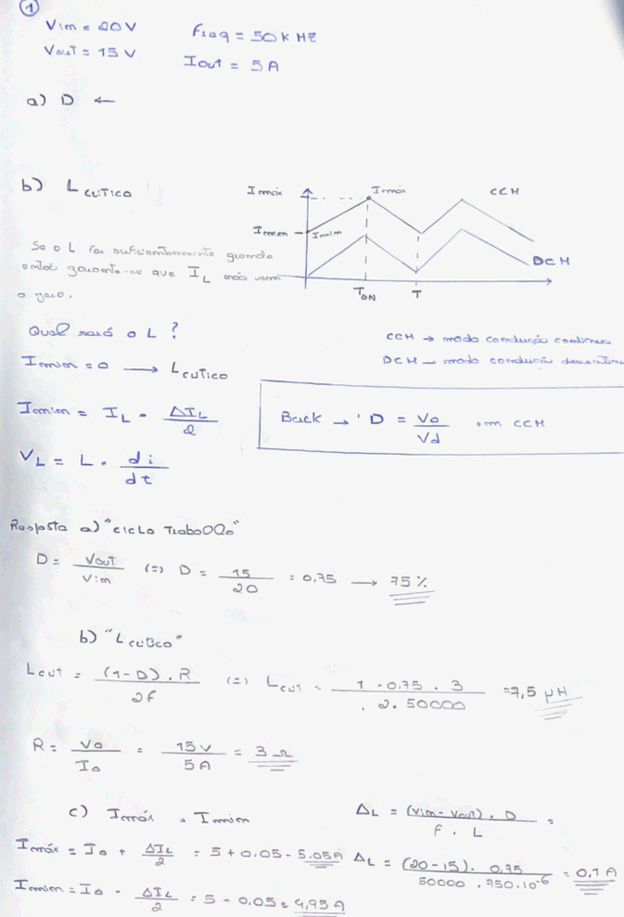 1
Vin = 20V
Freq = 50 kHz
Vout = 15 V
Iout = 5 A
a) D ←
b) L crítico
Imáx
Imáx
CCM
Imin
Imin
DCM
TON
T
Se o L for suficientemente grande
então garante-se que IL não vem
a zero.
Qual será o L ?
CCM → modo condução contínua
Imin = 0 ⟶ L crítico
DCM → modo condução descontínua
Imin = IL - ΔIL / 2
Buck → D = Vo / Vd em CCM
VL = L . di / dt
Resposta a) "Ciclo Trabalho"
D = Vout / Vin (=) D = 15 / 20 = 0.75 ⟶ 75 %
b) "L crítico"
Lcrit = (1-D) . R / 2f (=) Lcrit = 1 - 0.75 . 3 / 2 . 50000 = 7,5 μH
R = Vo / Io = 15 V / 5 A = 3 Ω
c) Imáx e Imin
ΔL = (Vin - Vout) . D / F . L =
Imáx = Io + ΔIL / 2 = 5 + 0.05 = 5.05A
ΔL = (20 - 15) . 0.75 / 50000 . 750.10⁻⁶ = 0,1 A
Imin = Io - ΔIL / 2 = 5 - 0.05 = 4,95A